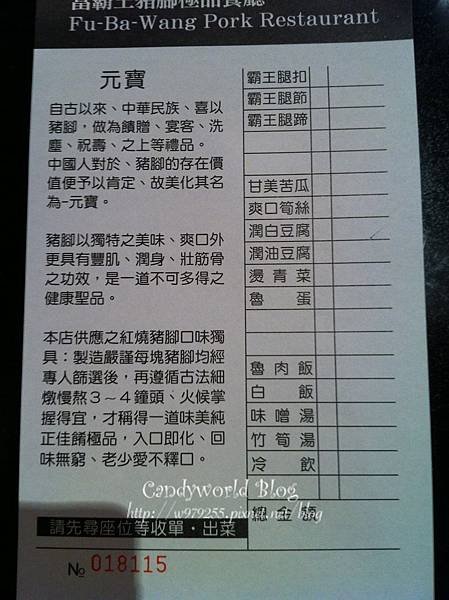 富霸王豬腳極品餐廳
Fu-Ba-Wang Pork Restaurant
元寶
自古以來、中華民族、喜以
豬腳，做為饋贈、宴客、洗
塵、祝壽、之上等禮品。
中國人對於、豬腳的存在價
值便予以肯定、故美化其名
為-元寶。
豬腳以獨特之美味、爽口外
更具有豐肌、潤身、壯筋骨
之功效，是一道不可多得之
健康聖品。
本店供應之紅燒豬腳口味獨
具：製造嚴謹每塊豬腳均經
專人篩選後，再遵循古法細
燉慢熬3～4鐘頭、火候掌
握得宜，才稱得一道味美純
正佳餚極品，入口即化、回
味無窮、老少愛不釋口。
請先尋座位等收單·出菜
№ 018115
霸王腿扣
霸王腿節
霸王腿蹄
甘美苦瓜
爽口筍絲
潤白豆腐
潤油豆腐
燙青菜
魯蛋
魯肉飯
白飯
味噌湯
竹筍湯
冷飲
總金額
Candyworld Blog
http://w979255.pixnet.net/blog